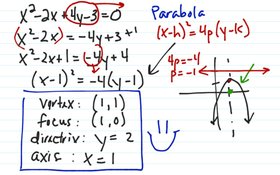 x²-2x+4y-3=0
Parabola
(x²-2x) = -4y+3+1
(x-h)²=4p(y-k)
x²-2x+1 = -4y+4
4p=-4
p=-1
(x-1)² = -4(y-1)
vertex: (1,1)
focus: (1,0)
directrix: y=2
axis: x=1